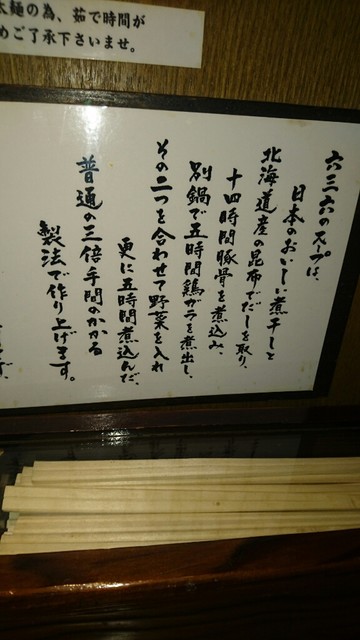 太麺の為、茹で時間が
めご了承下さいませ。
六三六のスープは、
日本のおいしい煮干しと
北海道産の昆布でだしを取り、
十四時間豚骨を煮込み、
別鍋で五時間鶏ガラを煮出し、
その二つを合わせて野菜を入れ
更に五時間煮込んだ、
普通の三倍手間のかかる
製法で作り上げます。